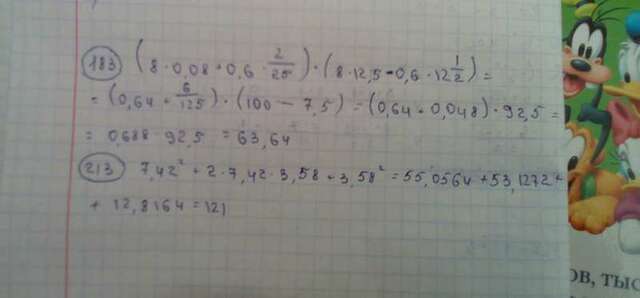 183 (8 · 0,08 + 0,6 · 2/25) · (8 · 12,5 - 0,6 · 12 1/2) =
= (0,64 + 6/125) · (100 - 7,5) = (0,64 + 0,048) · 92,5 =
= 0,688 · 92,5 = 63,64
213 7,42² + 2 · 7,42 · 3,58 + 3,58² = 55,0564 + 53,1272 +
+ 12,8164 = 121
ОВ, ТЫС